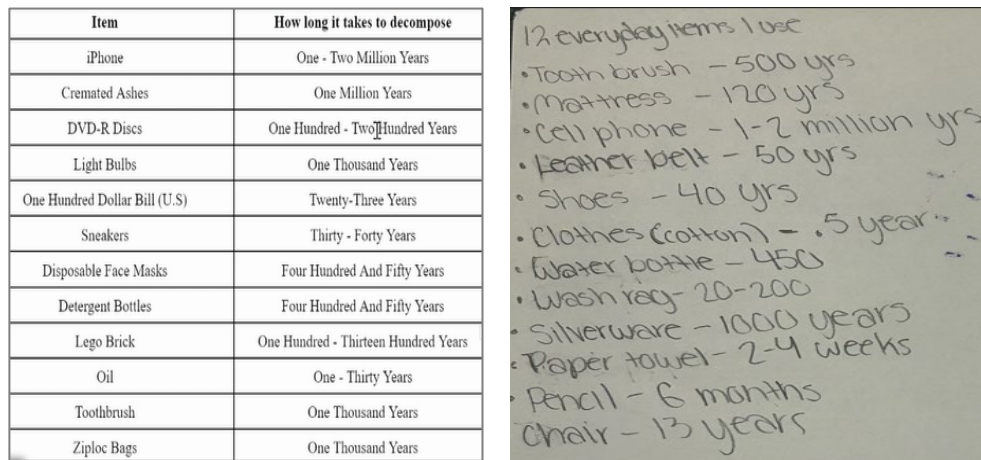 Item How long it takes to decompose
iPhone One - Two Million Years
Cremated Ashes One Million Years
DVD-R Discs One Hundred - Two Hundred Years
Light Bulbs One Thousand Years
One Hundred Dollar Bill (U.S) Twenty-Three Years
Sneakers Thirty - Forty Years
Disposable Face Masks Four Hundred And Fifty Years
Detergent Bottles Four Hundred And Fifty Years
Lego Brick One Hundred - Thirteen Hundred Years
Oil One - Thirty Years
Toothbrush One Thousand Years
Ziploc Bags One Thousand Years
12 everyday items I use
• Tooth brush - 500 yrs
• Mattress - 120 yrs
• Cell phone - 1-2 million yrs
• Leather belt - 50 yrs
• Shoes - 40 yrs
• Clothes (cotton) - .5 year
• Water bottle - 450
• Wash rag - 20-200
• Silverware - 1000 years
• Paper towel - 2-4 weeks
• Pencil - 6 months
Chair - 13 years